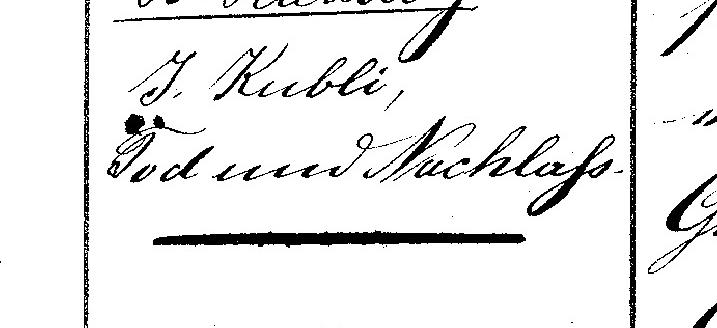 J. Kubli,
Tod und Nachlaß.